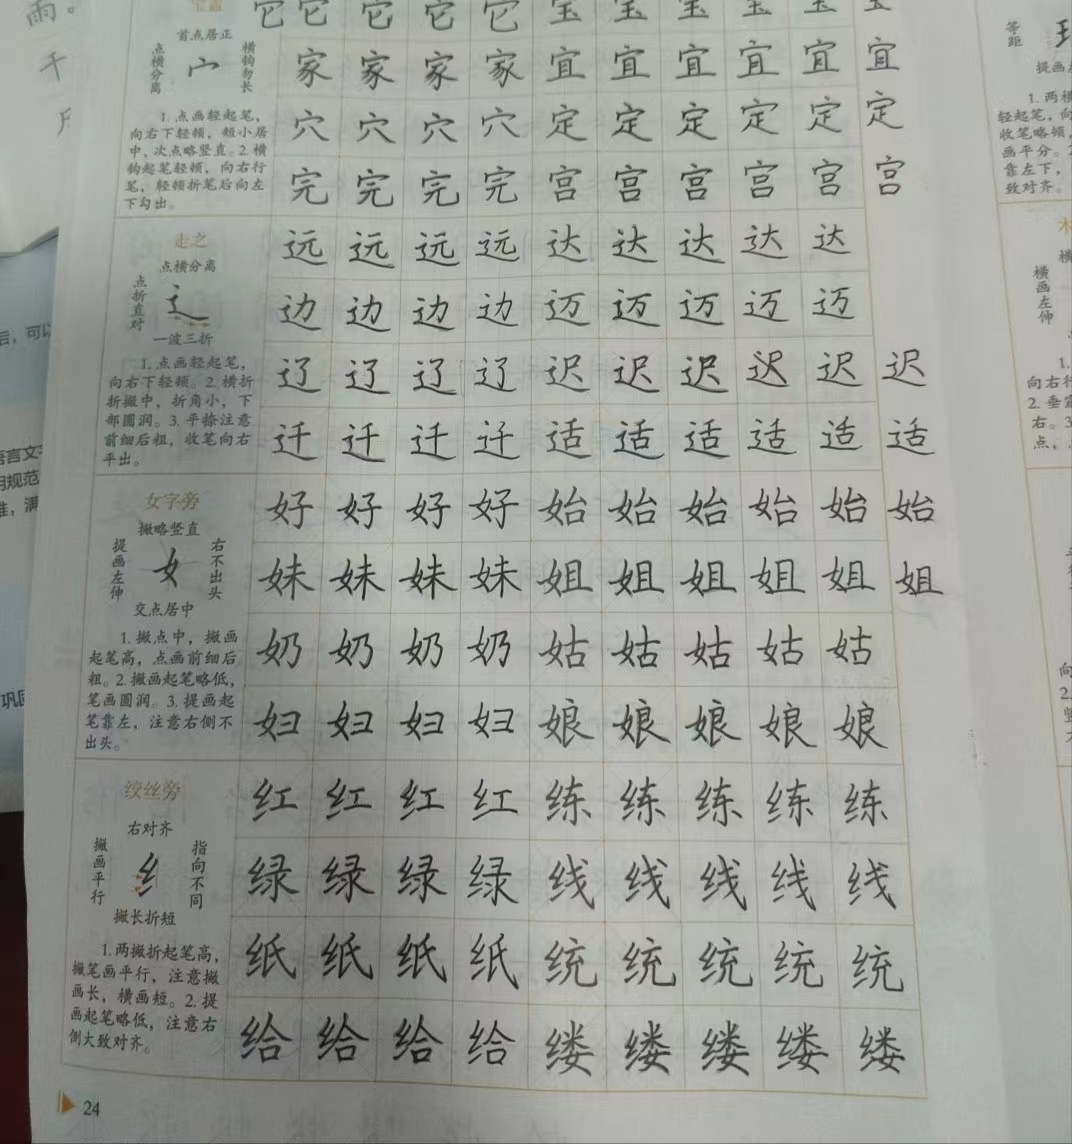 雨。
千
后，可以
语言文字
用规范
准，满
巩固
宝盖
首点居正
点横分离
宀
横钩勿长
1. 点画轻起笔，
向右下轻顿，短小居
中，次点略竖直。2. 横
钩起笔轻顿，向右行
笔，轻顿折笔后向左
下勾出。
它它它它它宝宝宝宝宝宝
家家家家宜宜宜宜宜宜
穴穴穴穴定定定定定定
完完完完宫宫宫宫宫宫
走之
点横分离
点折直对
辶
一波三折
1. 点画轻起笔，
向右下轻顿。2. 横折
折撇中，折角小，下
部圆润。3. 平捺注意
前细后粗，收笔向右
平出。
远远远远达达达达达
边边边边迈迈迈迈迈
辽辽辽辽迟迟迟迟迟迟
迁迁迁迁适适适适适适
女字旁
撇略竖直
提画左伸
女
右不出头
交点居中
1. 撇点中，撇画
起笔高，点画前细后
粗。2. 撇画起笔略低，
笔画圆润。3. 提画起
笔靠左，注意右侧不
出头。
好好好好始始始始始始
妹妹妹妹姐姐姐姐姐姐
奶奶奶奶姑姑姑姑姑
妇妇妇妇娘娘娘娘娘
绞丝旁
右对齐
撇画平行
纟
指向不同
撇长折短
1. 两撇折起笔高，
撇笔画平行，注意撇
画长，横画短。2. 提
画起笔略低，注意右
侧大致对齐。
红红红红练练练练练
绿绿绿绿线线线线线
纸纸纸纸统统统统统
给给给给缕缕缕缕缕
24
等距
提画左
1. 两横
轻起笔，向
收笔略顿，
画平分。2
靠左下，
致对齐。
木
横
横画左伸
1.
向右行
2. 垂露
右。3
点，
向
2.
竖